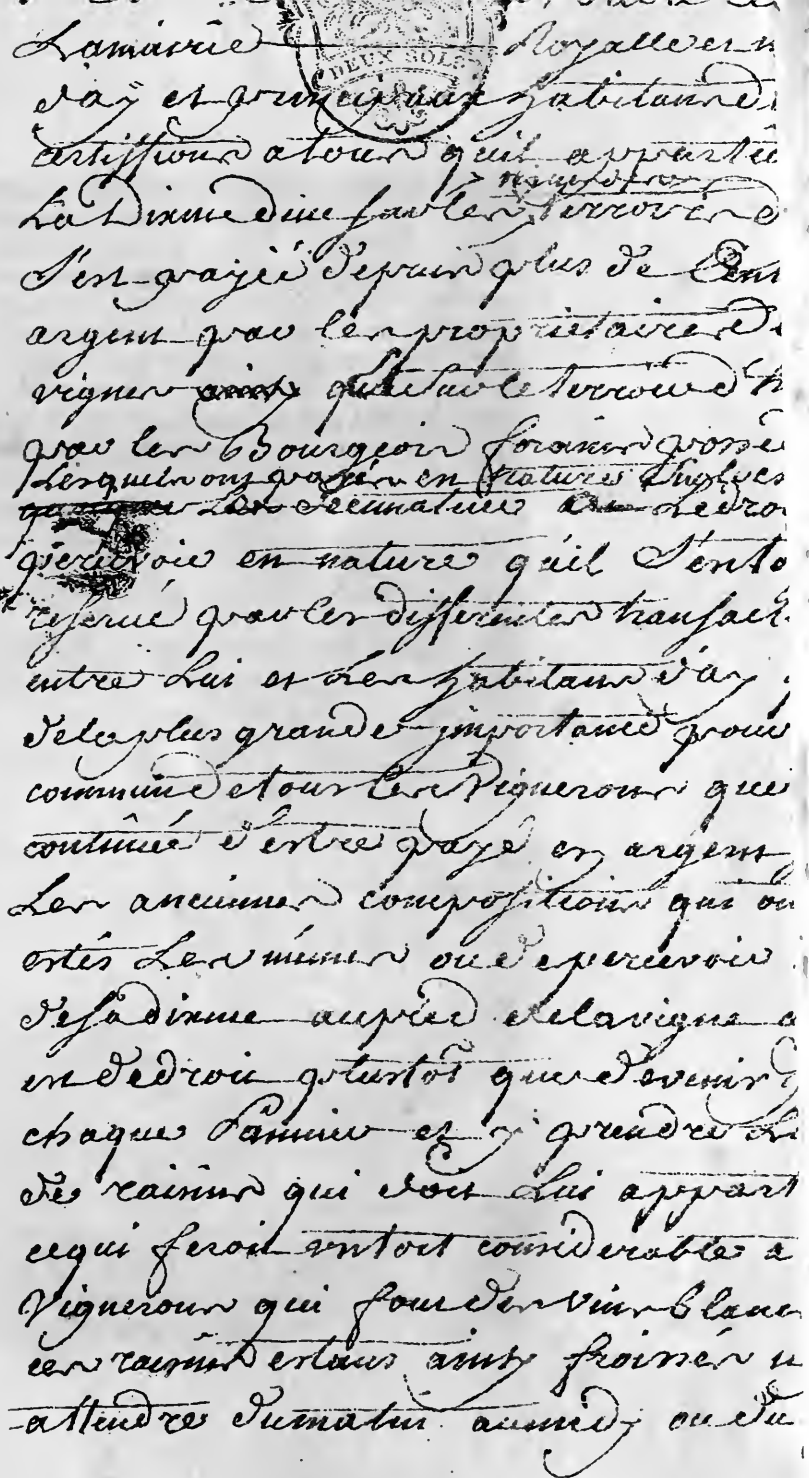 Lamairie Royalle et
DEUX SOLS
d'ay et principaux habitans de
certiffions a tous qu'il appartie
La Dixme due sur les terroirs d
S'est payéé depuis plus de Cent
argent par les proprietaires de
vignes que sur le terroir d'
par les Bourgeois forains possé
Lesquels ont payés en nature
Les decimateur
percevoir en nature qu'il S'est
reservé par les differentes transact
entre Lui et Les habitans d'ay
dela plus grande importance pour
commune et tous les vignerons que
continüé d'estre payé en argent
Les anciennes compositions qui on
estés Les mêmes ou de percevoir
de sa dixme aupied delavigne a
endedroit plustôt que devenir
chaque Pannier et y prendre L
de raisins qui doit Lui appart
cequi feroit untort considerable a
Vignerons qui font des vins blanc
ces raisins estans ainsy froissés
attendre dumatin aumidy ou du